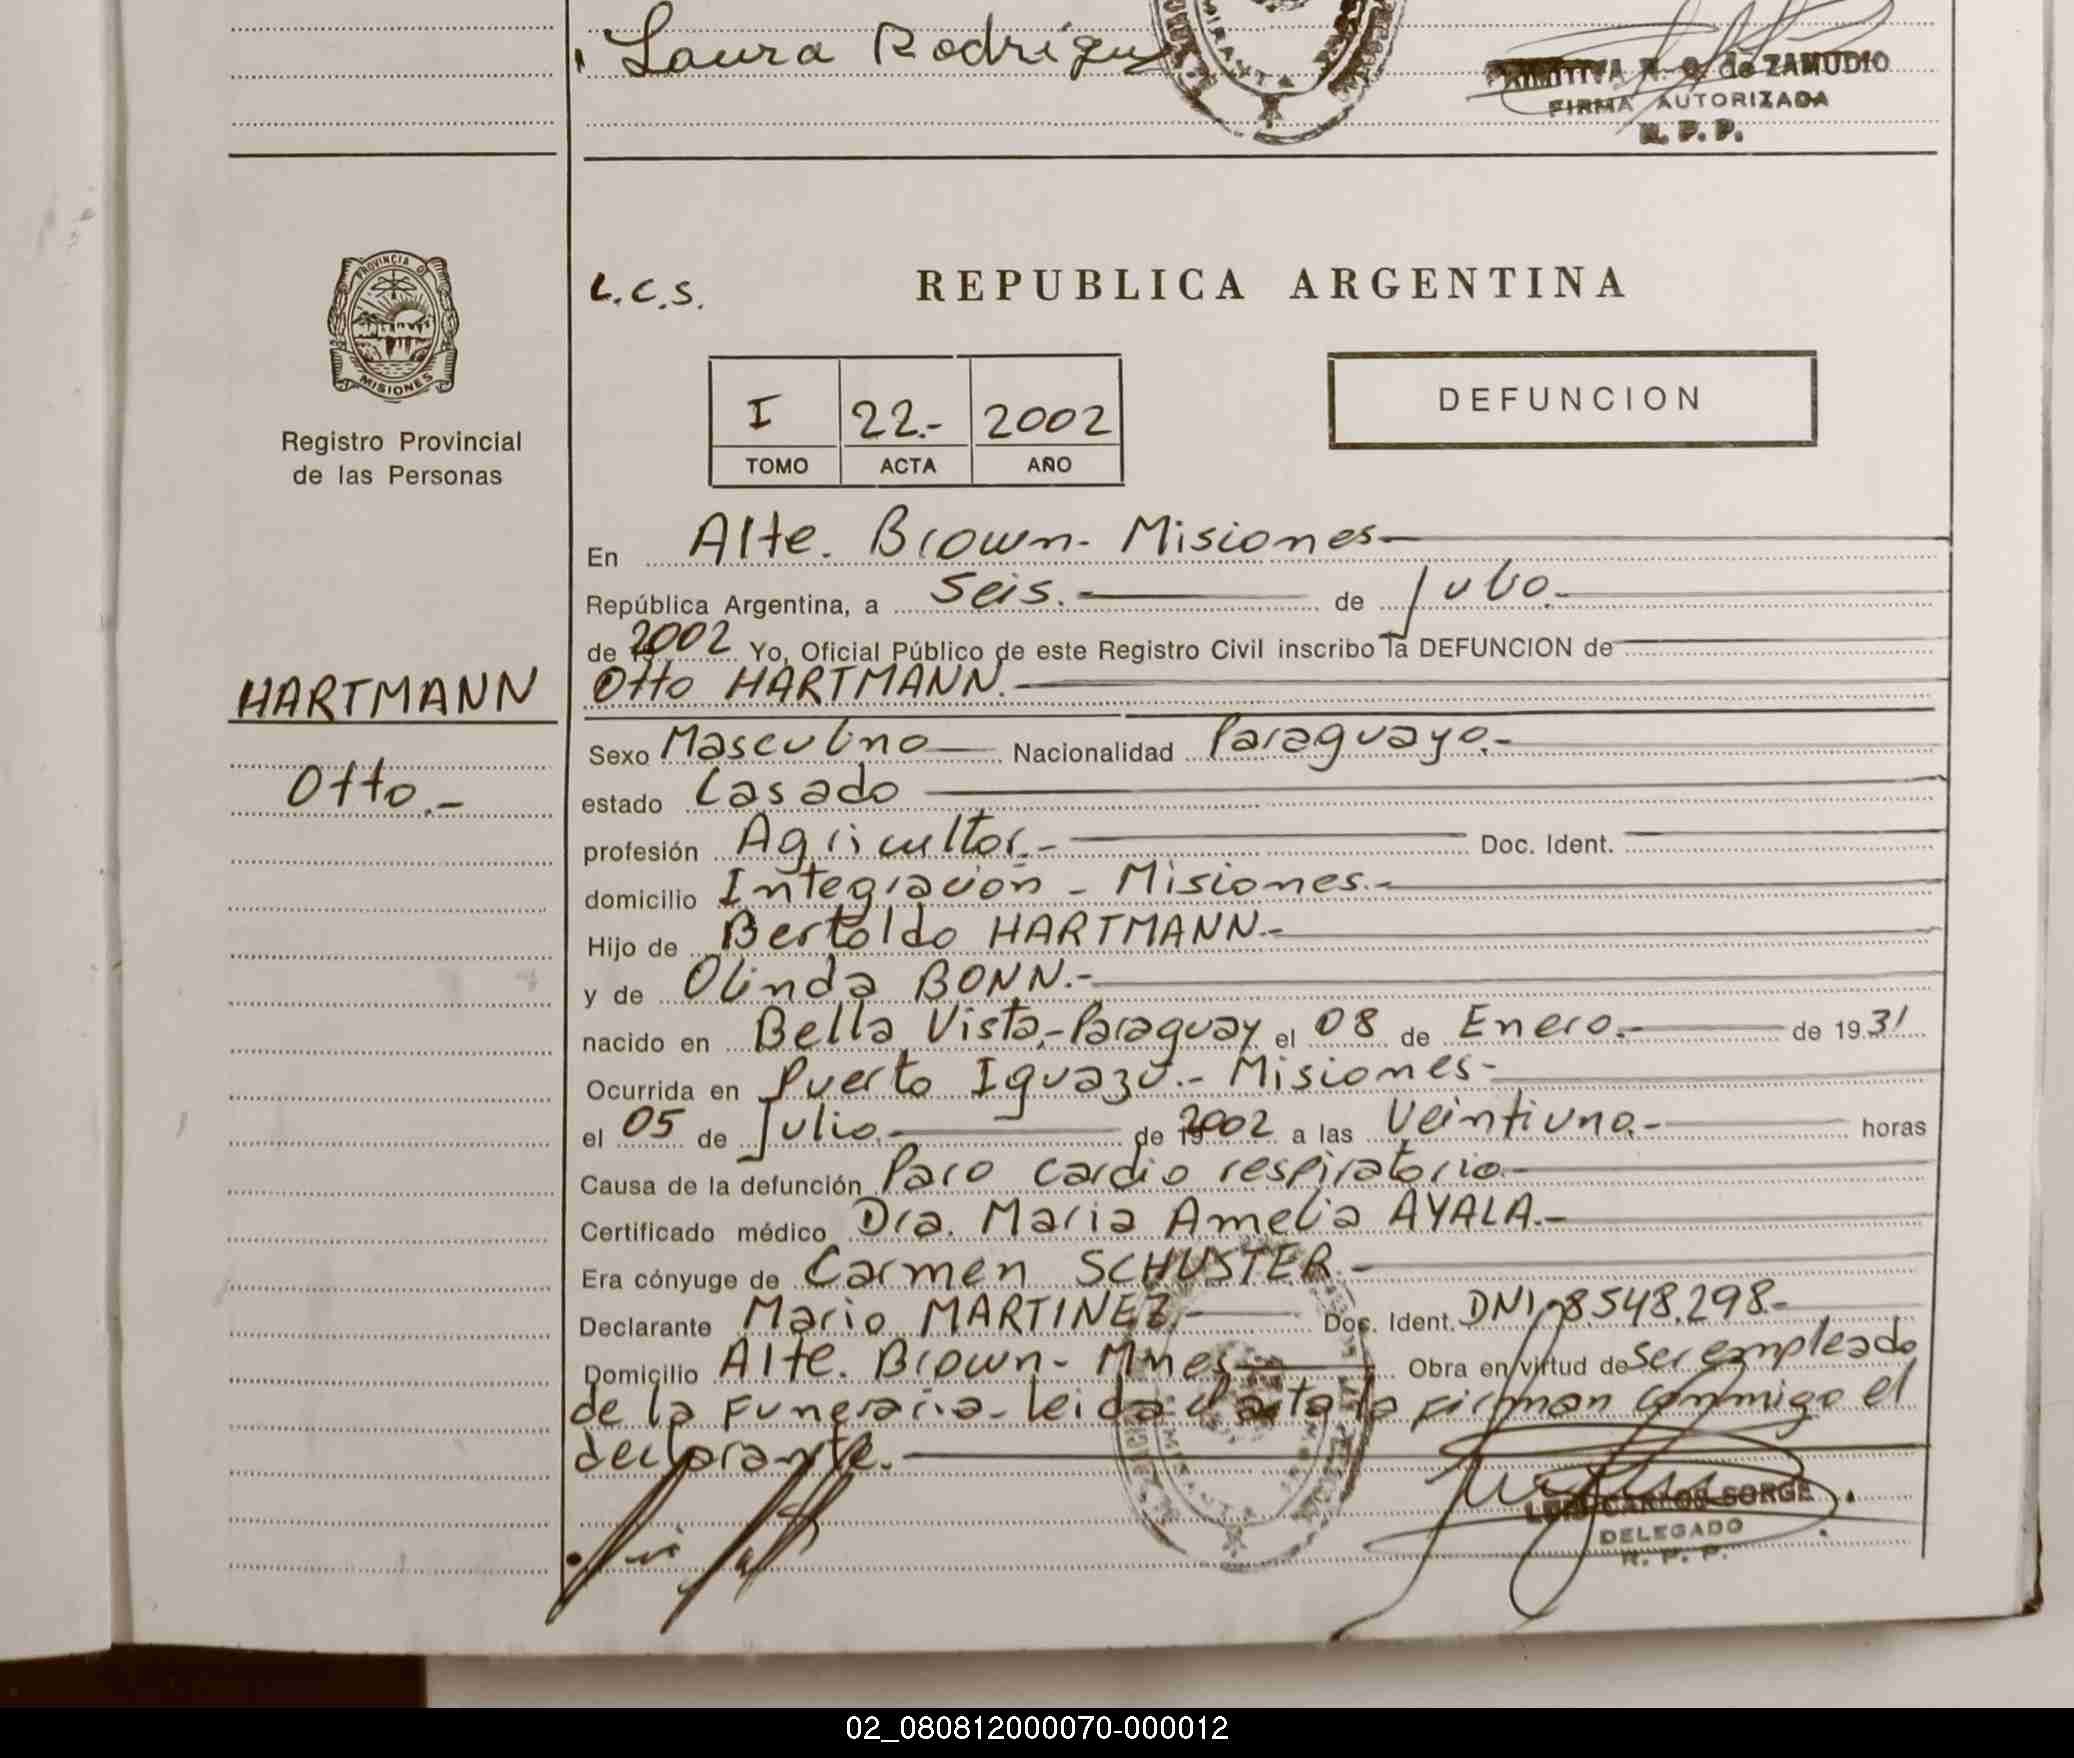 Laura Rodríguez
PRIMITIVA N. G. de ZAMUDIO
FIRMA AUTORIZADA
R. P. P.
PROVINCIA DE
MISIONES
Registro Provincial
de las Personas
L.C.S.
REPUBLICA ARGENTINA
I 22.- 2002
TOMO ACTA AÑO
DEFUNCION
En Alte. Brown- Misiones-
República Argentina, a Seis.- de Julio.-
de 2002 Yo, Oficial Público de este Registro Civil inscribo la DEFUNCION de
HARTMANN
Otto.-
Otto HARTMANN.-
Sexo Masculino Nacionalidad Paraguayo.-
estado Casado
profesión Agricultor.- Doc. Ident.
domicilio Integración - Misiones.-
Hijo de Bertoldo HARTMANN.-
y de Olinda BONN.-
nacido en Bella Vista,-Paraguay. el 08 de Enero.- de 19 31
Ocurrida en Puerto Iguazú.- Misiones-
el 05 de Julio.- de 2002 a las Veintiuna.- horas
Causa de la defunción Paro cardio respiratorio.-
Certificado médico Dra. Maria Amelia AYALA.-
Era cónyuge de Carmen SCHUSTER.-
Declarante Mario MARTINEZ.- Doc. Ident. DNI 8.548.298.-
Domicilio Alte. Brown- Mnes Obra en virtud de ser empleado
de la Funeraria- leida el acta la firman conmigo el
declarante.
LUIS CARLOS SORGE
DELEGADO
R. P. P.
02_080812000070-000012